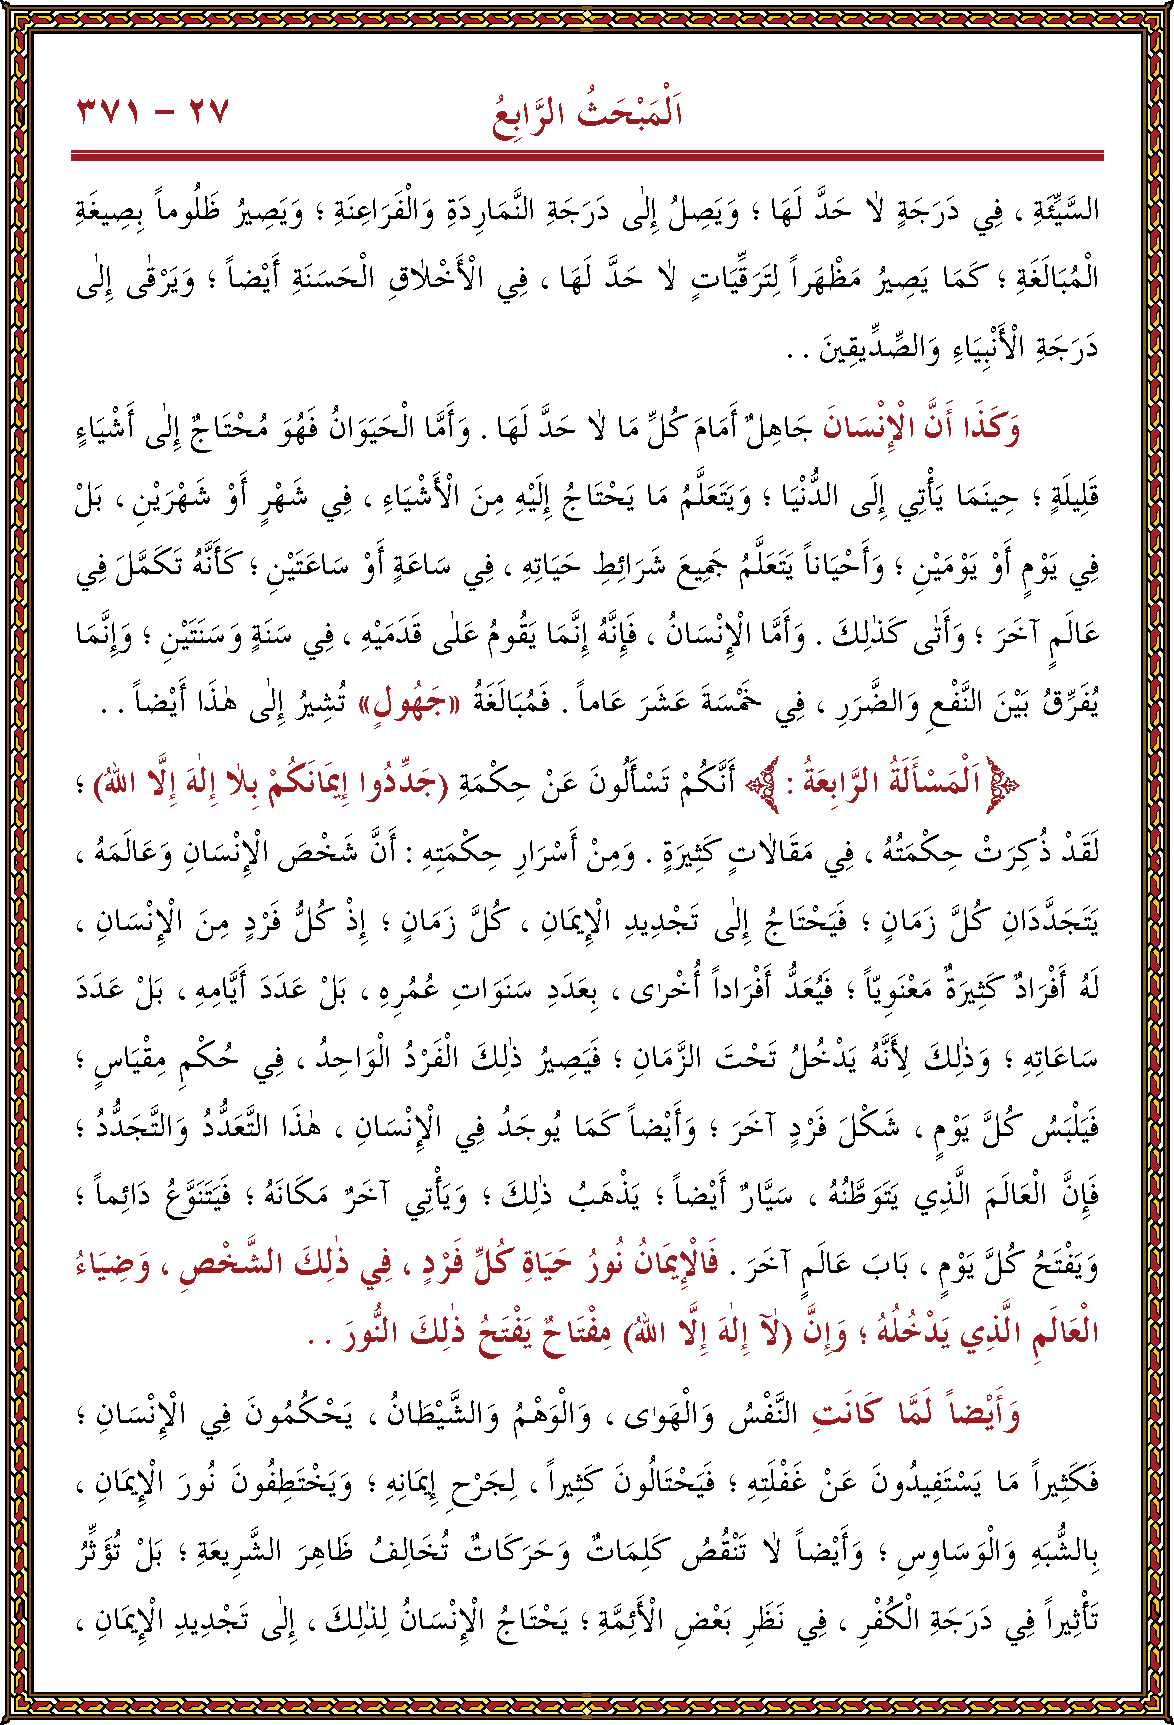 اَلْمَبْحَثُ الرَّابِعُ
٢٧ - ٣٧١
السَّيِّئَةِ ، فِي دَرَجَةٍ لَا حَدَّ لَهَا ؛ وَيَصِلُ إِلٰى دَرَجَةِ النَّمَارِدَةِ وَالْفَرَاعِنَةِ ؛ وَيَصِيرُ ظَلُوماً بِصِيغَةِ
الْمُبَالَغَةِ ؛ كَمَا يَصِيرُ مَظْهَراً لِتَرَقِّيَاتٍ لَا حَدَّ لَهَا ، فِي الْأَخْلَاقِ الْحَسَنَةِ أَيْضاً ؛ وَيَرْقٰى إِلٰى
دَرَجَةِ الْأَنْبِيَاءِ وَالصِّدِّيقِينَ . .
وَكَذَا أَنَّ الْإِنْسَانَ جَاهِلٌ أَمَامَ كُلِّ مَا لَا حَدَّ لَهَا . وَأَمَّا الْحَيَوَانُ فَهُوَ مُحْتَاجٌ إِلٰى أَشْيَاءٍ
قَلِيلَةٍ ؛ حِينَمَا يَأْتِي إِلَى الدُّنْيَا ؛ وَيَتَعَلَّمُ مَا يَحْتَاجُ إِلَيْهِ مِنَ الْأَشْيَاءِ ، فِي شَهْرٍ أَوْ شَهْرَيْنِ ، بَلْ
فِي يَوْمٍ أَوْ يَوْمَيْنِ ؛ وَأَحْيَاناً يَتَعَلَّمُ جَمِيعَ شَرَائِطِ حَيَاتِهِ ، فِي سَاعَةٍ أَوْ سَاعَتَيْنِ ؛ كَأَنَّهُ تَكَمَّلَ فِي
عَالَمٍ آخَرَ ؛ وَأَتٰى كَذٰلِكَ . وَأَمَّا الْإِنْسَانُ ، فَإِنَّهُ إِنَّمَا يَقُومُ عَلٰى قَدَمَيْهِ ، فِي سَنَةٍ وَسَنَتَيْنِ ؛ وَإِنَّمَا
يُفَرِّقُ بَيْنَ النَّفْعِ وَالضَّرَرِ ، فِي خَمْسَةَ عَشَرَ عَاماً . فَمُبَالَغَةُ «جَهُولٍ» تُشِيرُ إِلٰى هٰذَا أَيْضاً . .
﴿اَلْمَسْأَلَةُ الرَّابِعَةُ : ﴾ أَنَّكُمْ تَسْأَلُونَ عَنْ حِكْمَةِ (جَدِّدُوا إِيمَانَكُمْ بِلَا إِلٰهَ إِلَّا اللهُ) ؛
لَقَدْ ذُكِرَتْ حِكْمَتُهُ ، فِي مَقَالَاتٍ كَثِيرَةٍ . وَمِنْ أَسْرَارِ حِكْمَتِهِ : أَنَّ شَخْصَ الْإِنْسَانِ وَعَالَمَهُ ،
يَتَجَدَّدَانِ كُلَّ زَمَانٍ ؛ فَيَحْتَاجُ إِلٰى تَجْدِيدِ الْإِيمَانِ ، كُلَّ زَمَانٍ ؛ إِذْ كُلُّ فَرْدٍ مِنَ الْإِنْسَانِ ،
لَهُ أَفْرَادٌ كَثِيرَةٌ مَعْنَوِيّاً ؛ فَيُعَدُّ أَفْرَاداً أُخْرٰى ، بِعَدَدِ سَنَوَاتِ عُمُرِهِ ، بَلْ عَدَدَ أَيَّامِهِ ، بَلْ عَدَدَ
سَاعَاتِهِ ؛ وَذٰلِكَ لِأَنَّهُ يَدْخُلُ تَحْتَ الزَّمَانِ ؛ فَيَصِيرُ ذٰلِكَ الْفَرْدُ الْوَاحِدُ ، فِي حُكْمِ مِقْيَاسٍ ؛
فَيَلْبَسُ كُلَّ يَوْمٍ ، شَكْلَ فَرْدٍ آخَرَ ؛ وَأَيْضاً كَمَا يُوجَدُ فِي الْإِنْسَانِ ، هٰذَا التَّعَدُّدُ وَالتَّجَدُّدُ ؛
فَإِنَّ الْعَالَمَ الَّذِي يَتَوَطَّنُهُ ، سَيَّارٌ أَيْضاً ؛ يَذْهَبُ ذٰلِكَ ؛ وَيَأْتِي آخَرٌ مَكَانَهُ ؛ فَيَتَنَوَّعُ دَائِماً ؛
وَيَفْتَحُ كُلَّ يَوْمٍ ، بَابَ عَالَمٍ آخَرَ . فَالْإِيمَانُ نُورُ حَيَاةِ كُلِّ فَرْدٍ ، فِي ذٰلِكَ الشَّخْصِ ، وَضِيَاءُ
الْعَالَمِ الَّذِي يَدْخُلُهُ ؛ وَإِنَّ (لَآ إِلٰهَ إِلَّا اللهُ) مِفْتَاحٌ يَفْتَحُ ذٰلِكَ النُّورَ . .
وَأَيْضاً لَمَّا كَانَتِ النَّفْسُ وَالْهَوٰى ، وَالْوَهْمُ وَالشَّيْطَانُ ، يَحْكُمُونَ فِي الْإِنْسَانِ ؛
فَكَثِيراً مَا يَسْتَفِيدُونَ عَنْ غَفْلَتِهِ ؛ فَيَحْتَالُونَ كَثِيراً ، لِجَرْحِ إِيمَانِهِ ؛ وَيَخْتَطِفُونَ نُورَ الْإِيمَانِ ،
بِالشُّبَهِ وَالْوَسَاوِسِ ؛ وَأَيْضاً لَا تَنْقُصُ كَلِمَاتٌ وَحَرَكَاتٌ تُخَالِفُ ظَاهِرَ الشَّرِيعَةِ ؛ بَلْ تُؤَثِّرُ
تَأْثِيراً فِي دَرَجَةِ الْكُفْرِ ، فِي نَظَرِ بَعْضِ الْأَئِمَّةِ ؛ يَحْتَاجُ الْإِنْسَانُ لِذٰلِكَ ، إِلٰى تَجْدِيدِ الْإِيمَانِ ،